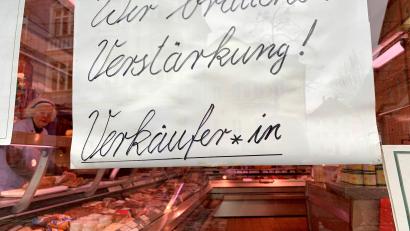 Wir brauchen
Verstärkung!
Verkäufer*in